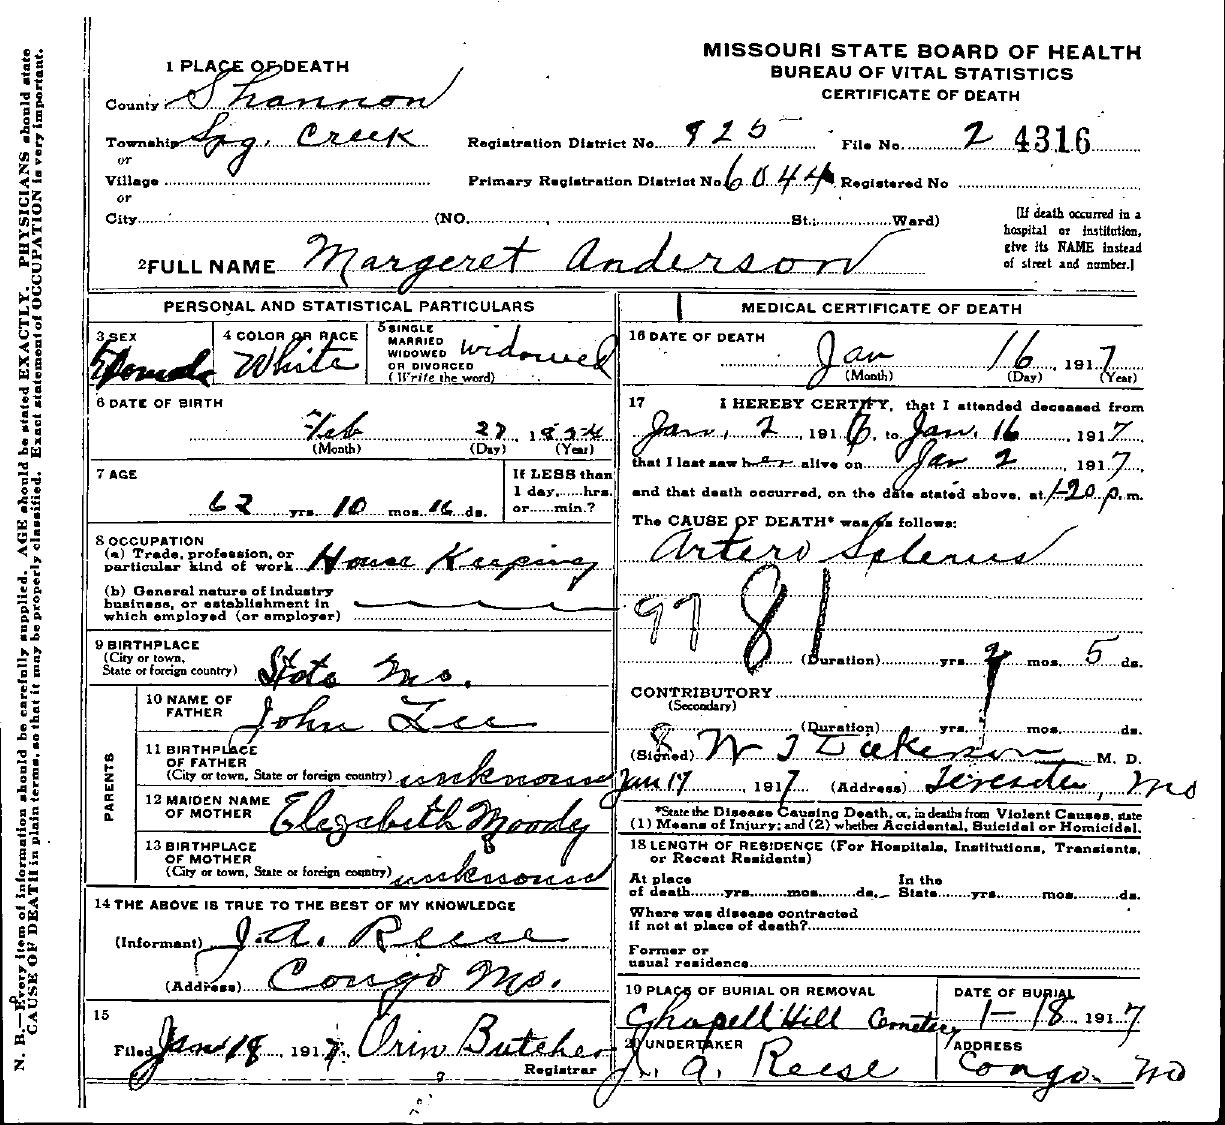 MISSOURI STATE BOARD OF HEALTH
BUREAU OF VITAL STATISTICS
CERTIFICATE OF DEATH
1 PLACE OF DEATH
County Shannon
Township Spg. Creek
or
Village
or
City (NO. , St.; Ward)
Registration District No. 825 File No. 2 4316
Primary Registration District No. 6044 Registered No
[If death occurred in a
hospital or institution,
give its NAME instead
of street and number.]
2 FULL NAME Margeret Anderson
PERSONAL AND STATISTICAL PARTICULARS
3 SEX
Female
4 COLOR OR RACE
White
5 SINGLE
MARRIED
WIDOWED
OR DIVORCED
(Write the word)
widowed
6 DATE OF BIRTH
Feb 27, 1854
(Month) (Day) (Year)
7 AGE
62 yrs. 10 mos. 16 ds.
If LESS than
1 day,......hrs.
or......min.?
8 OCCUPATION
(a) Trade, profession, or
particular kind of work House Keeping
(b) General nature of industry
business, or establishment in
which employed (or employer)
9 BIRTHPLACE
(City or town,
State or foreign country) State Mo.
PARENTS
10 NAME OF
FATHER John Lee
11 BIRTHPLACE
OF FATHER
(City or town, State or foreign country) unknown
12 MAIDEN NAME
OF MOTHER Elezabeth Moody
13 BIRTHPLACE
OF MOTHER
(City or town, State or foreign country) unknown
14 THE ABOVE IS TRUE TO THE BEST OF MY KNOWLEDGE
(Informant) J. A. Reese
(Address) Congo Mo.
15
Filed Jan 18, 1917 Orin Butcher
Registrar
MEDICAL CERTIFICATE OF DEATH
16 DATE OF DEATH
Jan 16 1917
(Month) (Day) (Year)
17 I HEREBY CERTIFY, that I attended deceased from
Jan. 2, 1916, to Jan. 16, 1917
that I last saw her alive on Jan 2, 1917,
and that death occurred, on the date stated above, at 1-20 p.m.
The CAUSE OF DEATH* was as follows:
Artero Sclerus
97 81
(Duration) yrs. mos. 5 ds.
CONTRIBUTORY
(Secondary)
(Duration) yrs. mos. ds.
(Signed) W T M. D.
Jan 17 1917 (Address) Mo
*State the Disease Causing Death, or, in deaths from Violent Causes, state
(1) Means of Injury; and (2) whether Accidental, Suicidal or Homicidal.
18 LENGTH OF RESIDENCE (For Hospitals, Institutions, Transients,
or Recent Residents)
At place In the
of death yrs. mos. ds. State yrs. mos. ds.
Where was disease contracted
if not at place of death?
Former or
usual residence
19 PLACE OF BURIAL OR REMOVAL
Chapell Hill Cemetery
DATE OF BURIAL
1-18, 1917
20 UNDERTAKER
J. A. Reese
ADDRESS
Congo Mo
N. B.—Every item of information should be carefully supplied. AGE should be stated EXACTLY. PHYSICIANS should state
CAUSE OF DEATH in plain terms, so that it may be properly classified. Exact statement of OCCUPATION is very important.